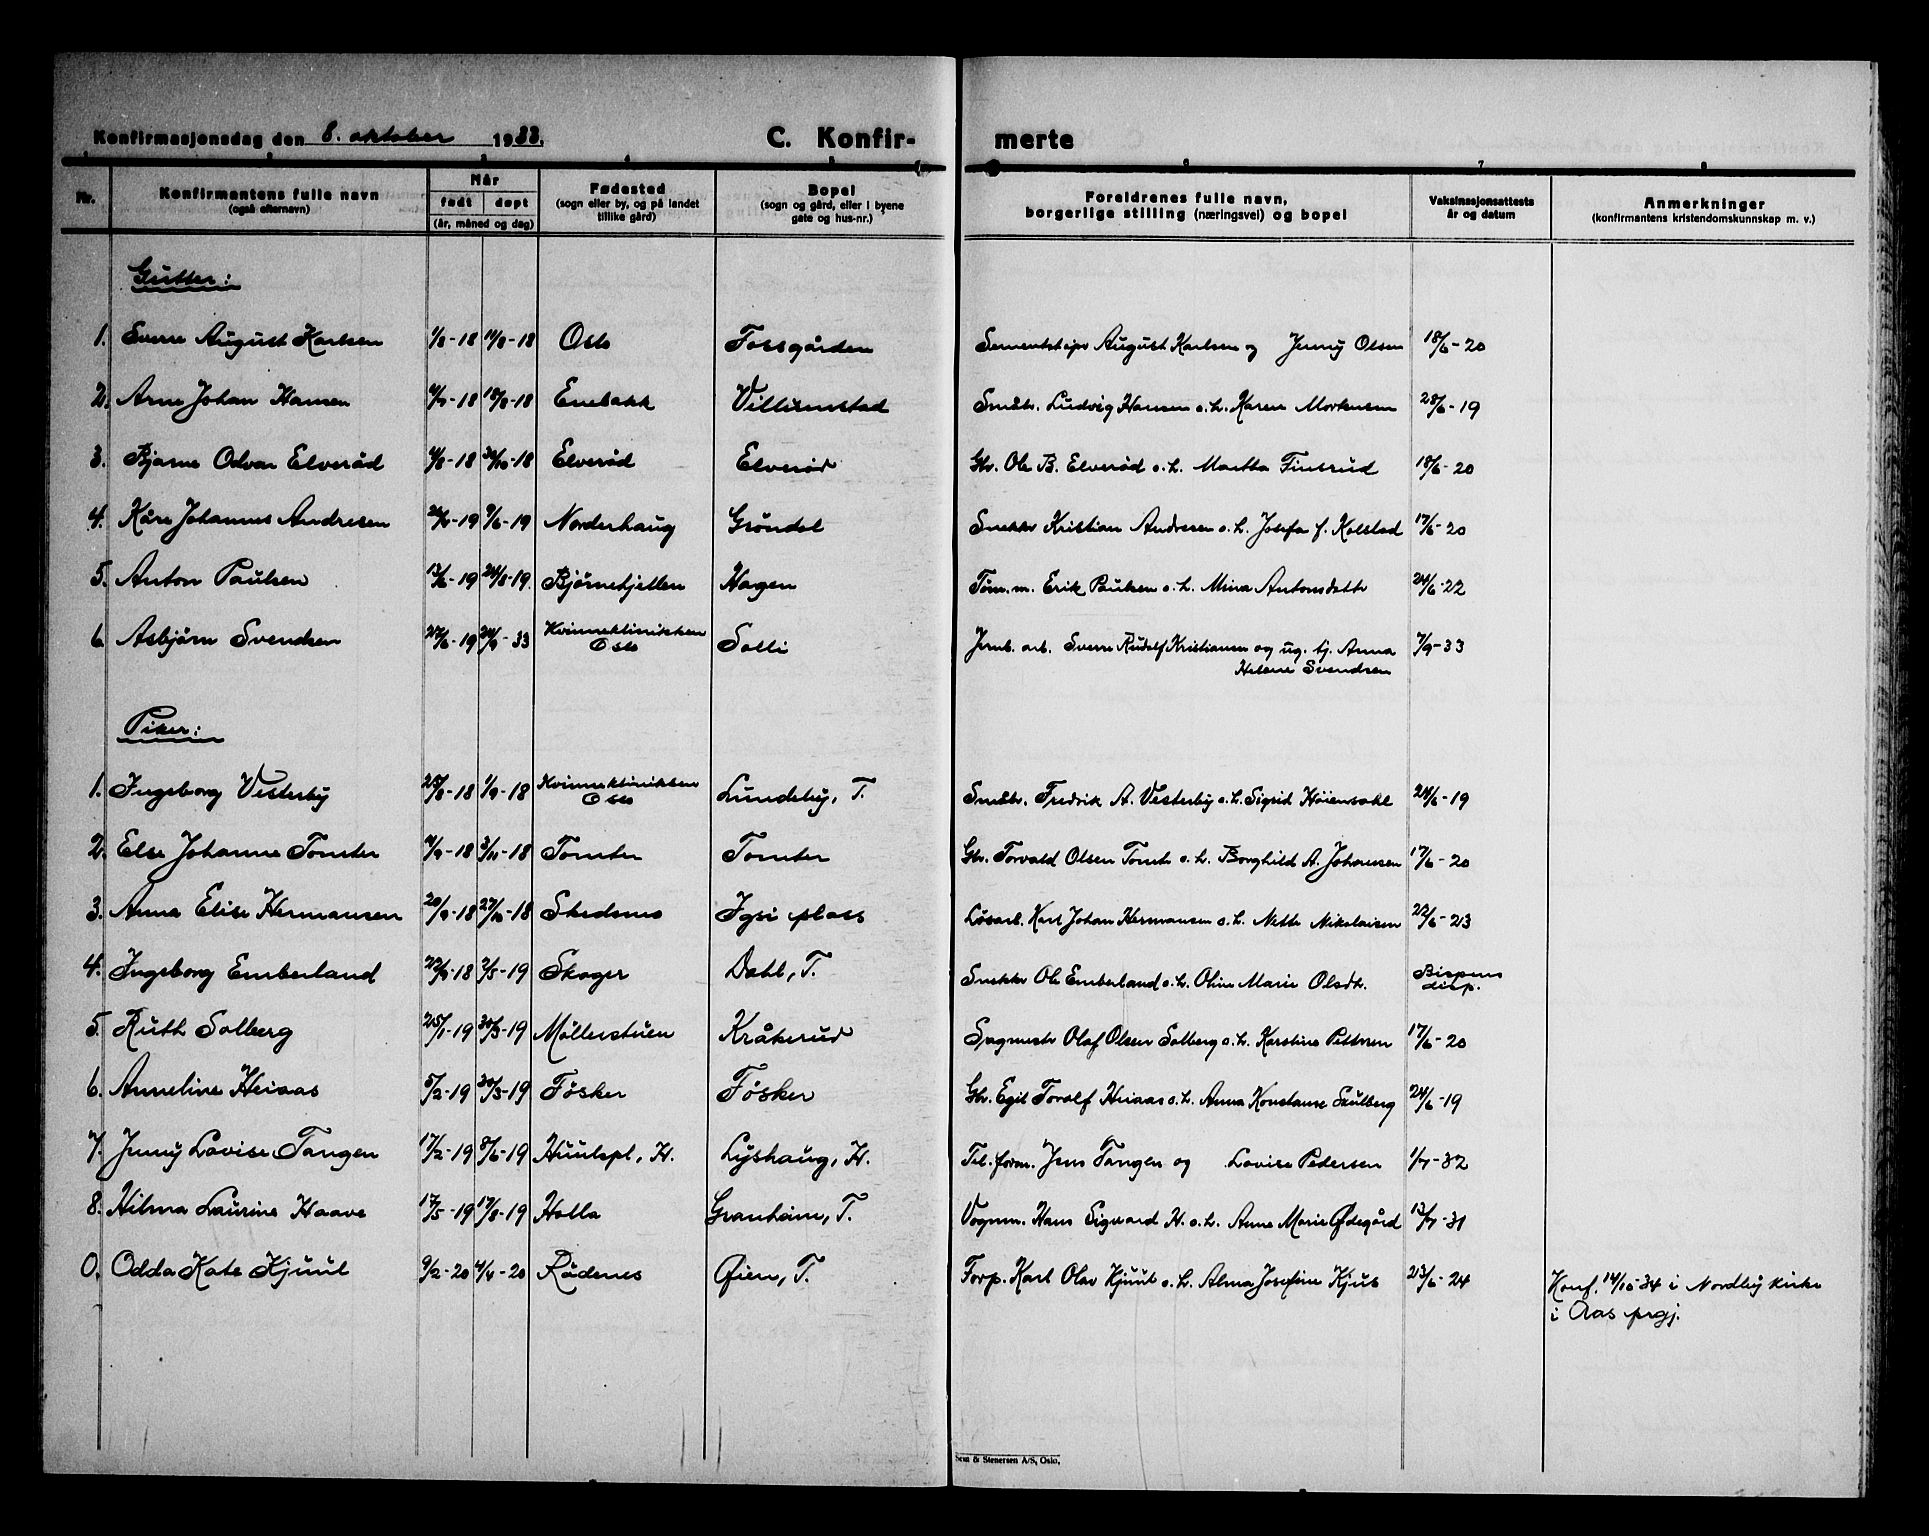 Konfirmasjonsdag den 8. oktober 1933. C. Konfir- merte
6 7 8
Nr. Konfirmantens fulle navn (også efternavn) Når født døpt (år, måned og dag) Fødested (sogn eller by, og på landet tillike gård) Bopel (sogn og gård, eller i byene gate og hus-nr.) Foreldrenes fulle navn, borgerlige stilling (næringsvei) og bopel Vaksinasjonsattests år og datum Anmerkninger (konfirmantens kristendomskunnskap m. v.)
Gutter:
1. Sverre August Karlsen 1/8-18 11/8-18 Oslo Fossgården Sementstøper August Karlsen og Jenny Olsen 18/6-20
2. Arne Johan Hansen 18/8-18 Enebakk Villumstad Småbr. Ludvig Hansen o.h. Karen Mortensen 28/6-19
3. Bjarne Odvar Elverød 4/8-18 Elverød Elverød Gbr. Ole B. Elverød o.h. Martha Finsrud 18/6-20
4. Kåre Johannes Andresen 9/6-19 Norderhaug Grøndal Snekker Kristian Andresen o.h. Josefa f. Kolstad 17/6-20
5. Anton Paulsen 13/6-19 24/8-19 Bjørnefjellen Hagen Tøm.m. Erik Paulsen o.h. Mina Antonsdatter 24/6-22
6. Asbjørn Svendsen 27/6-19 24/9-33 Kvinneklinikken Oslo Solli Jernb. arb. Sverre Rudolf Kristiansen og ug. tj. Anna Helene Svendsen 7/9-33
Piker:
1. Ingeborg Vesterby 25/8-18 1/9-18 Kvinneklinikken Oslo Lundeby, T. Småbr. Fredrik A. Vesterby o.h. Sigrid Høiendahl 24/6-19
2. Else Johanne Tomter 11/9-18 3/11-18 Tomter Tomter Gbr. Torvald Olsen Tomter o.h. Borghild A. Johansen 17/6-20
3. Anna Elise Hermansen 20/9-18 27/10-18 Skedsmo Igsi plass Løsarb. Karl Johan Hermansen o.h. Nette Nikolaisen 22/6-23
4. Ingeborg Emberland 22/9-18 2/5-19 Skoger Dahl, T. Snekker Ole Emberland o.h. Oline Marie Olsdtr. Bispens disp.
5. Ruth Solberg 25/1-19 30/3-19 Møllerstuen Kråkerud Sagmester Olaf Olsen Solberg o.h. Karstine Pettersen 17/6-20
6. Anneline Heiaas 5/2-19 30/3-19 Føsker Føsker Gbr. Egil Torolf Heiaas o.h. Anna Konstanse Skulberg 24/6-19
7. Jenny Lovise Tangen 17/2-19 8/6-19 Huulepl, H. Lyshaug, H. Tel. form. Jens Tangen og Lovise Pedersen 1/7-32
8. Hilma Laurine Haave 17/5-19 17/8-19 Holla Granheim, T. Vognm. Hans Sigvard H. o.h. Anne Marie Ødegård 13/7-31
0. Odda Kate Kjuul 9/2-20 4/4-20 Rødenes Øien, T. Forp. Karl Olav Kjuul o.h. Alma Josefine Kjus 23/6-24 Konf. 14/10-34 i Nordby kirke
i Aas prgj.
Sem & Stenersen A/S, Oslo.